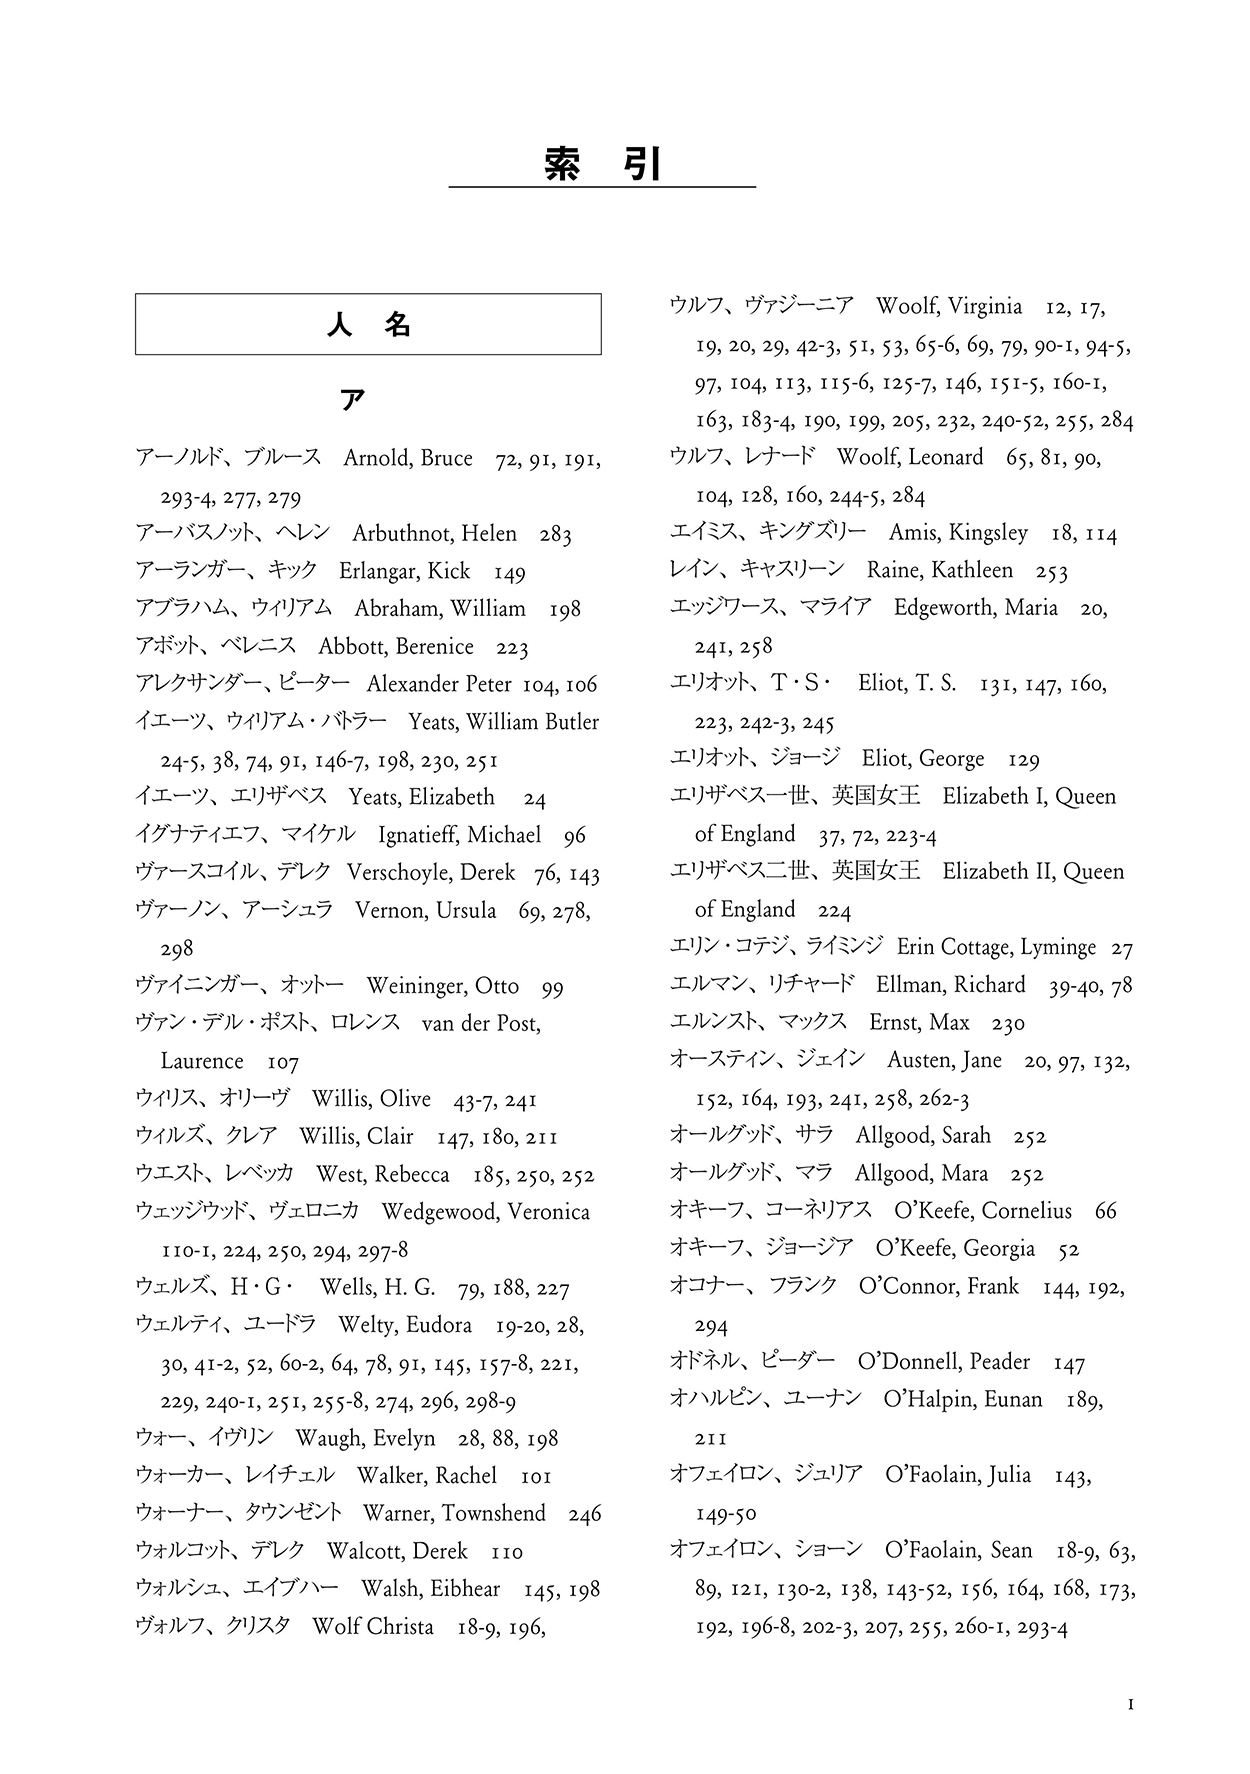 索 引
人 名
ア
アーノルド、ブルース Arnold, Bruce 72, 91, 191,
293-4, 277, 279
アーバスノット、ヘレン Arbuthnot, Helen 283
アーランガー、キック Erlangar, Kick 149
アブラハム、ウィリアム Abraham, William 198
アボット、ベレニス Abbott, Berenice 223
アレクサンダー、ピーター Alexander Peter 104, 106
イエーツ、ウィリアム・バトラー Yeats, William Butler
24-5, 38, 74, 91, 146-7, 198, 230, 251
イエーツ、エリザベス Yeats, Elizabeth 24
イグナティエフ、マイケル Ignatieff, Michael 96
ヴァースコイル、デレク Verschoyle, Derek 76, 143
ヴァーノン、アーシュラ Vernon, Ursula 69, 278,
298
ヴァイニンガー、オットー Weininger, Otto 99
ヴァン・デル・ポスト、ロレンス van der Post,
Laurence 107
ウィリス、オリーヴ Willis, Olive 43-7, 241
ウィルズ、クレア Willis, Clair 147, 180, 211
ウエスト、レベッカ West, Rebecca 185, 250, 252
ウェッジウッド、ヴェロニカ Wedgewood, Veronica
110-1, 224, 250, 294, 297-8
ウェルズ、H・G・ Wells, H. G. 79, 188, 227
ウェルティ、ユードラ Welty, Eudora 19-20, 28,
30, 41-2, 52, 60-2, 64, 78, 91, 145, 157-8, 221,
229, 240-1, 251, 255-8, 274, 296, 298-9
ウォー、イヴリン Waugh, Evelyn 28, 88, 198
ウォーカー、レイチェル Walker, Rachel 101
ウォーナー、タウンゼント Warner, Townshend 246
ウォルコット、デレク Walcott, Derek 110
ウォルシュ、エイブハー Walsh, Eibhear 145, 198
ヴォルフ、クリスタ Wolf Christa 18-9, 196,
ウルフ、ヴァジーニア Woolf, Virginia 12, 17,
19, 20, 29, 42-3, 51, 53, 65-6, 69, 79, 90-1, 94-5,
97, 104, 113, 115-6, 125-7, 146, 151-5, 160-1,
163, 183-4, 190, 199, 205, 232, 240-52, 255, 284
ウルフ、レナード Woolf, Leonard 65, 81, 90,
104, 128, 160, 244-5, 284
エイミス、キングズリー Amis, Kingsley 18, 114
レイン、キャスリーン Raine, Kathleen 253
エッジワース、マライア Edgeworth, Maria 20,
241, 258
エリオット、T・S・ Eliot, T. S. 131, 147, 160,
223, 242-3, 245
エリオット、ジョージ Eliot, George 129
エリザベス一世、英国女王 Elizabeth I, Queen
of England 37, 72, 223-4
エリザベス二世、英国女王 Elizabeth II, Queen
of England 224
エリン・コテジ、ライミンジ Erin Cottage, Lyminge 27
エルマン、リチャード Ellman, Richard 39-40, 78
エルンスト、マックス Ernst, Max 230
オースティン、ジェイン Austen, Jane 20, 97, 132,
152, 164, 193, 241, 258, 262-3
オールグッド、サラ Allgood, Sarah 252
オールグッド、マラ Allgood, Mara 252
オキーフ、コーネリアス O’Keefe, Cornelius 66
オキーフ、ジョージア O’Keefe, Georgia 52
オコナー、フランク O’Connor, Frank 144, 192,
294
オドネル、ピーダー O’Donnell, Peader 147
オハルピン、ユーナン O’Halpin, Eunan 189,
211
オフェイロン、ジュリア O’Faolain, Julia 143,
149-50
オフェイロン、ショーン O’Faolain, Sean 18-9, 63,
89, 121, 130-2, 138, 143-52, 156, 164, 168, 173,
192, 196-8, 202-3, 207, 255, 260-1, 293-4
1